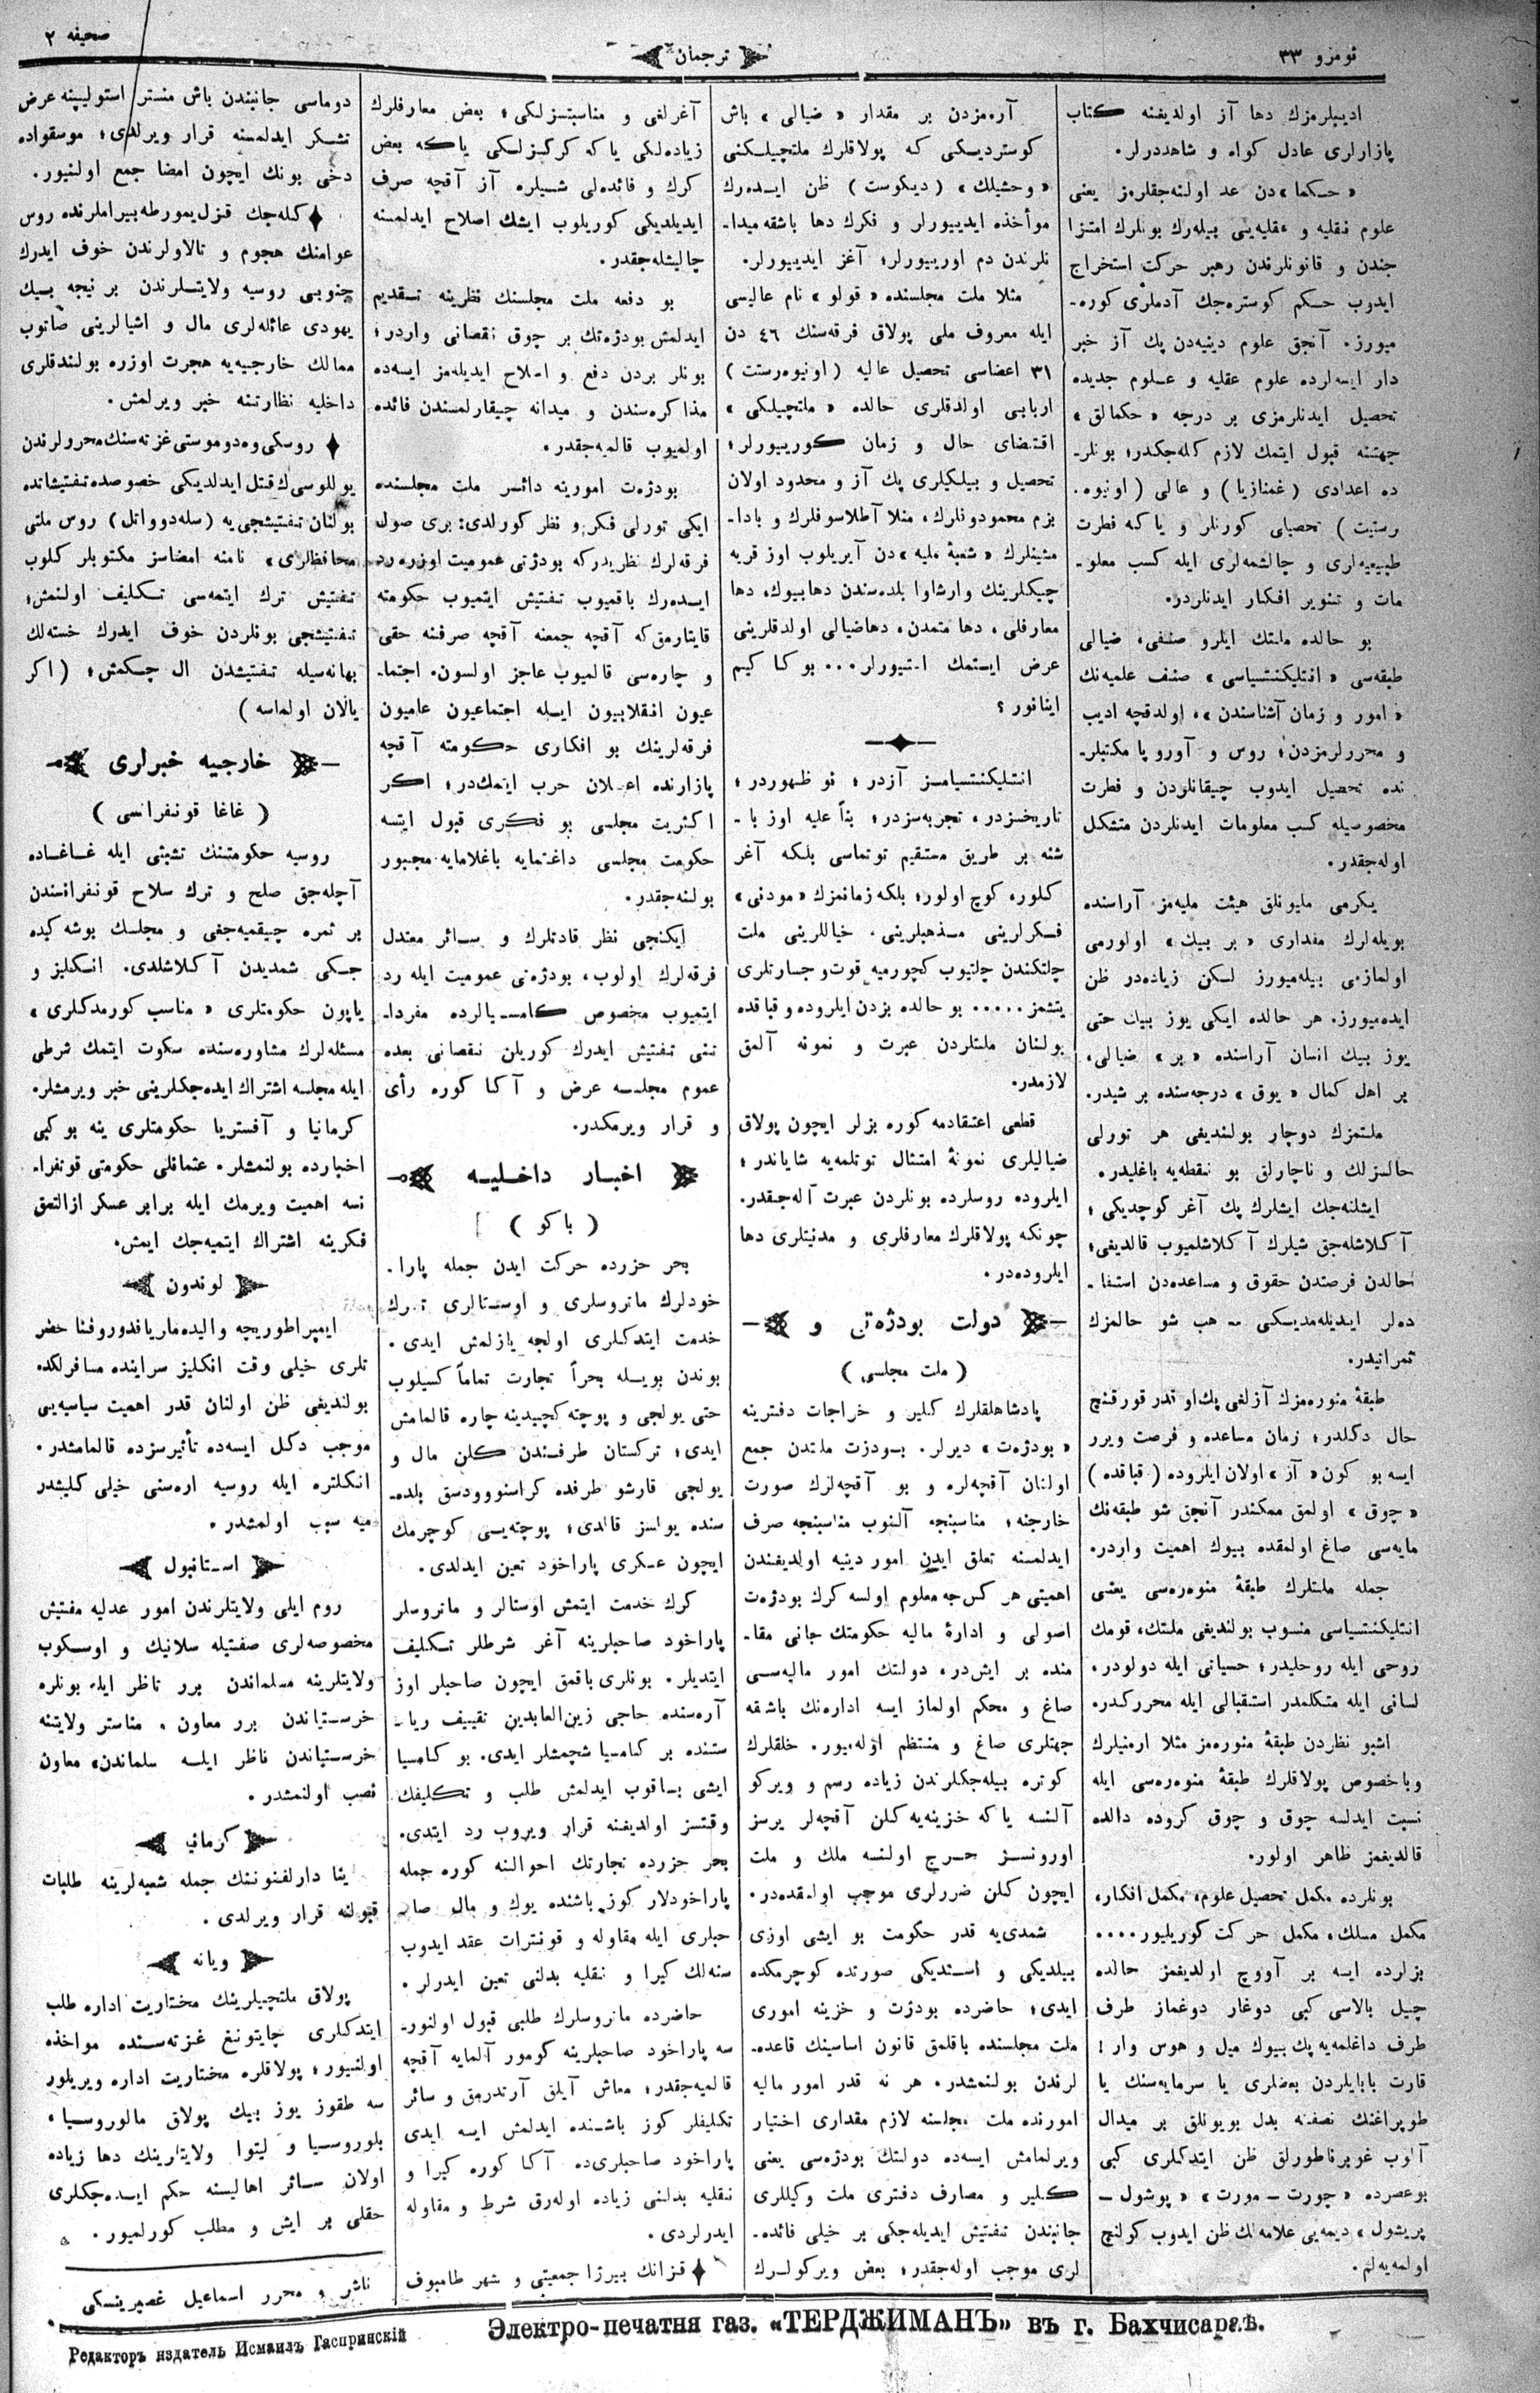 نومرو ٣٣
ترجمان
صحيفه ٢
اديبلرمزك دها آز اولديغنه كتاب
پازارلرى عادل كواه و شاهددرلر.
« حكما » دن عد اولنه‌جقلرمز يعنى
علوم نقليه و عقليه‌يى بيله‌رك بونلرك امتزا
جندن و قانونلرندن رهبر حركت استخراج
ايدوب حكم كوستره‌جك آدملرى كوره‌ـ
ميورز. آنجق علوم دينيه‌دن پك آز خبر
دار ايسه‌لرده علوم عقليه و علوم جديده
تحصيل ايدنلرمزى بر درجه « حكمالق »
جهتنه قبول ايتمك لازم كله‌جكدر؛ بونلرـ
ده اعدادى ( غمنازيا ) و عالى ( اونيوه‌ـ
رستيت ) تحصيلى كورنلر و ياكه فطرت
طبيعيه‌لرى و چالشمه‌لرى ايله كسب معلوـ
مات و تنوير افكار ايدنلردر.
بو حالده ملتك ايلرو صنفى، ضيالى
طبقه‌سى « انتليكنتسياسى » صنف علميه‌نك
« امور و زمان آشناسندن »، اولدقچه اديب
و محررلرمزدن؛ روس و آوروپا مكتبلرـ
نده تحصيل ايدوب چيقانلردن و فطرت
مخصوصيله كسب معلومات ايدنلردن متشكل
اوله‌جقدر.
يكرمى مليونلق هيئت مليه‌مز آراسنده
بويله‌لرك مقدارى « بر بيك » اولورمى
اولمازمى بيله‌ميورز لكن زياده‌در ظن
ايده‌ميورز. هر حالده ايكى يوز بيك حتى
يوز بيك انسان آراسنده « بر » ضيالى،
بر اهل كمال « يوق » درجه‌سنده بر شيدر.
ملتمزك دوچار بولنديغى هر تورلى
حالسزلك و ناچارلق بو نقطه‌يه باغليدر.
ايشلنه‌جك ايشلرك پك آغر كوچديكى؛
آكلاشله‌جق شيلرك آكلاشلميوب قالديغى؛
حالدن فرصتدن حقوق و مساعده‌دن استفاـ
ده‌لر ايديله‌مديكى ـ هب شو حالمزك
ثمراتيدر.
طبقهٔ منوره‌مزك آزلغى پك او قدر قورقنچ
حال دكلدر؛ زمان مساعده و فرصت ويرر
ايسه بو كون « آز » اولان ايلروده ( قباقده )
« چوق » اولمق ممكندر آنجق شو طبقه‌نك
مايه‌سى صاغ اولمقده بيوك اهميت واردر.
جمله ملتلرك طبقهٔ منوره‌سى يعنى
انتليكنتسياسى منسوب بولنديغى ملتك، قومك
روحى ايله روحليدر؛ حسياتى ايله دولودر،
لسانى ايله متكلمدر استقبالى ايله محرركدر.
اشبو نظردن طبقهٔ منوره‌مز مثلا ارمنيلرك
وباخصوص پولاقلرك طبقهٔ منوره‌سى ايله
نسبت ايدلسه چوق و چوق كروده دالده
قالديغمز ظاهر اولور.
بونلرده مكمل تحصيل علوم، مكمل افكار،
مكمل مسلك، مكمل حركت كوريليور....
بزلرده ايسه بر آووچ اولديغمز حالده
چيل بالاسى كبى دوغار دوغماز طرف
طرف داغلمه‌يه پك بيوك ميل و هوس وار!
قارت بابايلردن بعضلرى يا سرمايه‌سنك يا
طوپراغنك نصفنه بدل بويونلق بر ميدال
آلوب غوبرناطورلق ظن ايتدكلرى كبى
بوعصرده « چورت ـ مورت » « پوشول ـ
پريشول » ديمه‌يى علامه‌لك ظن ايدوب كولنچ
اولمه‌يه‌لم.
آره‌مزدن بر مقدار « ضيالى » باش
كوسترديكى كه پولاقلرك ملتچيلكنى
« وحشيلك » ( ديكوست ) ظن ايده‌رك
موأخذه ايدييورلر و فكرك دها باشقه ميداـ
نلرندن دم اورييورلر؛ آغز ايدييورلر.
مثلا ملت مجلسنده « قولو » نام عاليسى
ايله معروف ملى پولاق فرقه‌سنك ٤٦ دن
٣١ اعضاسى تحصيل عاليه ( اونيوه‌رستت )
اربابى اولدقلرى حالده « ملتچيلكى »
اقتضاى حال و زمان كورييورلر؛
تحصيل و بيلكيلرى پك آز و محدود اولان
بزم محمودونلرك، مثلا آطلاسوفلرك و باداـ
مشينلرك « شعبهٔ مليه » دن آيريلوب اوز قريه
چيكلرينك وارشاوا بلده‌سندن دها بيوك، دها
معارفلى، دها متمدن، دها ضيالى اولدقلرينى
عرض ايتمك استيورلر... بوكا كيم
اينانور؟
انتليكنتسيامز آزدر؛ نو ظهوردر؛
تاريخسزدر، تجربه‌سزدر؛ بنأ عليه اوز باـ
شنه بر طريق مستقيم توتماسى بلكه آغر
كلور، كوچ اولور؛ بلكه زمانمزك « مودنى »
فكرلرينى مذهبلرينى، خياللرينى ملت
چلتكندن چلتيوب كچورميه قوت و جسارتلرى
يتشمز..... بو حالده بزدن ايلروده و قباقده
بولنان ملتلردن عبرت و نمونه آلمق
لازمدر.
قطعى اعتقادمه كوره بزلر ايچون پولاق
ضياليلرى نمونهٔ امتثال توتلمه‌يه شاياندر؛
ايلروده روسلرده بونلردن عبرت آله‌جقدر.
چونكه پولاقلرك معارفلرى و مدنيتلرى دها
ايلروده‌در.
دولت بودژه‌تى و
( ملت مجلسى )
پادشاهلقلرك كلير و خراجات دفترينه
« بودژه‌ت » ديرلر. بودژت ملتدن جمع
اولنان آقچه‌لره و بو آقچه‌لرك صورت
خارجنه؛ مناسبنجه آلنوب مناسبنجه صرف
ايدلمسنه تعلق ايدن امور دينيه اولديغندن
اهميتى هر كس‌جه معلوم اولسه كرك بودژه‌ت
اصولى و ادارهٔ ماليه حكومتك جانى مقاـ
منده بر ايش‌در، دولتك امور ماليه‌سى
صاغ و محكم اولماز ايسه اداره‌نك باشقه
جهتلرى صاغ و منتظم اوله‌ميور. خلقلرك
كوتره بيله‌جكلرندن زياده رسم و ويركو
آلنسه ياكه خزينه‌يه كلن آقچه‌لر يرسز
اورونسز خرج اولنسه ملك و ملت
ايچون كلن ضررلرى موجب اولمقده‌در.
شمدى‌يه قدر حكومت بو ايشى اوزى
بيلديكى و استديكى صورتده كوچرمكده
ايدى؛ حاضرده بودژت و خزينه امورى
ملت مجلسنده باقلمق قانون اساسينك قاعده‌ـ
لرندن بولنمشدر. هر نه قدر امور ماليه
امورنده ملت مجلسنه لازم مقدارى اختيار
ويرلمامش ايسه‌ده دولتك بودژه‌سى يعنى
كلير و مصارف دفترى ملت وكيللرى
جانبندن تفتيش ايديله‌جكى بر خيلى فائده‌ـ
لرى موجب اوله‌جقدر؛ بعض ويركولرك
آغرلغى و مناسبتسزلكى؛ بعض معارفلرك
زياده‌لكى ياكه كركسزلكى ياكه بعض
كرك و فائده‌لى شيلره آز آقچه صرف
ايديلديكى كوريلوب ايشك اصلاح ايدلمسنه
چاليشله‌جقدر.
بو دفعه ملت مجلسنك نظرينه تقديم
ايدلمش بودژه‌تك بر چوق نقصانى واردر؛
بونلر بردن دفع و اصلاح ايديله‌مز ايسه‌ده
مذاكره‌سندن و ميدانه چيقارلمسندن فائده
اولميوب قالميه‌جقدر.
بودژه‌ت امورينه دائر ملت مجلسنده
ايكى تورلى فكر و نظر كورلدى: برى صول
فرقه‌لرك نظريدركه بودژتى عموميت اوزره رد
ايده‌رك باقميوب تفتيش ايتميوب حكومته
قايتارمق كه آقچه جمعنه آقچه صرفنه حقى
و چاره‌سى قالميوب عاجز اولسون. اجتماـ
عيون انقلابيون ايله اجتماعيون عاميون
فرقه‌لرينك بو افكارى حكومته آقچه
پازارنده اعلان حرب ايتمك‌در؛ اكر
اكثريت مجلسى بو فكرى قبول ايتسه
حكومت مجلسى داغتمايه باغلامايه مجبور
بولنه‌جقدر.
ايكنجى نظر قادتلرك و سائر معتدل
فرقه‌لرك اولوب، بودژه‌تى عموميت ايله رد
ايتميوب مخصوص كامسيالرده مفرداـ
تنى تفتيش ايدرك كوريلن نقصانى بعده
عموم مجلسه عرض و آكا كوره رأى
و قرار ويرمكدر.
اخبار داخليه
( باكو )
بحر حزرده حركت ايدن جمله پاراـ
خودلرك ماتروسلرى و اوستالرى ترك
خدمت ايتدكلرى اولجه يازلمش ايدى.
بوندن بويله بحراً تجارت تماماً كسيلوب
حتى يولجى و پوچته كچيدينه چاره قالمامش
ايدى؛ تركستان طرفندن كلن مال و
يولجى قارشو طرفده كراسنوودسق بلده‌ـ
سنده يولسز قالدى؛ پوچته‌يى كوچرمك
ايچون عسكرى پاراخود تعين ايدلدى.
كرك خدمت ايتمش اوستالر و ماتروسلر
پاراخود صاحبلرينه آغر شرطلر تكليف
ايتديلر. بونلرى باقمق ايچون صاحبلر اوز
آره‌سنده حاجى زين‌العابدين تقييف رياـ
ستنده بر كامسيا شچمشلر ايدى. بو كامسيا
ايشى باقوب ايدلمش طلب و تكليفك
وقتسز اولديغنه قرار ويروب رد ايتدى.
بحر حزرده تجارتك احوالنه كوره جمله
پاراخودلار كوز باشنده يوك و مال صاـ
حبلرى ايله مقاوله و قونترات عقد ايدوب
سنه‌لك كيرا و نقليه بدلنى تعين ايدرلر.
حاضرده ماتروسلرك طلبى قبول اولنورـ
سه پاراخود صاحبلرينه كومور آلمايه آقچه
قالميه‌جقدر؛ معاش آيلق آرتدرمق و سائر
تكليفلر كوز باشنده ايدلمش ايسه ايدى
پاراخود صاحبلرى‌ده آكا كوره كيرا و
نقليه بدلنى زياده اوله‌رق شرط و مقاوله
ايدرلردى.
قزانك بيرزا جمعيتى و شهر طامبوف
دوماسى جانبندن باش منستر استولپينه عرض
تشكر ايدلمسنه قرار ويرلدى؛ موسقواده
دخى بونك ايچون امضا جمع اولنيور.
كله‌جك قزل يمورطه بيراملرنده روس
عوامنك هجوم و تالاولرندن خوف ايدرك
جنوبى روسيه ولايتلرندن بر نيجه بيك
يهودى عائله‌لرى مال و اشيالرينى صاتوب
ممالك خارجيه‌يه هجرت اوزره بولندقلرى
داخليه نظارتنه خبر ويرلمش.
روسكى وه‌دوموستى غزته‌سنك محررلرندن
يوللوسى‌ك قتل ايدلديكى خصوصده تفتيشانده
بولنان تفتيشجى‌يه ( سله‌دوواتل ) روس ملتى
محافظلرى » نامنه امضاسز مكتوبلر كلوب
تفتيش ترك ايتمه‌سى تكليف اولنمش؛
تفتيشجى بونلردن خوف ايدرك خسته‌لك
بهانه‌سيله تفتيشدن ال چكمش؛ ( اكر
يالان اولماسه )
خارجيه خبرلرى
( غاغا قونفرانسى )
روسيه حكومتنك تشبثى ايله غاغاده
آچله‌جق صلح و ترك سلاح قونفرانسندن
بر ثمره چيقميه‌جغى و مجلسك بوشه كيده
جكى شمديدن آكلاشلدى. انكليز و
ياپون حكومتلرى « مناسب كورمدكلرى »
مسئله‌لرك مشاوره‌سنده سكوت ايتمك شرطى
ايله مجلسه اشتراك ايده‌جكلرينى خبر ويرمشلر.
كرمانيا و آفستريا حكومتلرى ينه بو كبى
اخبارده بولنمشلر. عثمانلى حكومتى قونفراـ
نسه اهميت ويرمك ايله برابر عسكر ازالتمق
فكرينه اشتراك ايتميه‌جك ايمش.
لوندون
ايمپراطوريچه والیده ماريا فدوروفنا حضر
تلرى خيلى وقت انكليز سراينده مسافرلكده
بولنديغى ظن اولنان قدر اهميت سياسيه‌يى
موجب دكل ايسه‌ده تأثيرسزده قالمامشدر.
انكلتره ايله روسيه اره‌سنى خيلى كليشدر
ميه سبب اولمشدر.
استانبول
روم ايلى ولايتلرندن امور عدليه مفتيش
مخصوصه‌لرى صفتيله سلانيك و اوسكوب
ولايتلرينه مسلماندن برر ناظر ايله بونلره
خرستياندن برر معاون، مناستر ولايتنه
خرستياندن ناظر ايلسه سلماندن، معاون
نصب اولنمشدر.
كرمانى
يئا دارلفنوننك جمله شعبه‌لرينه طلبات
قبولنه قرار ويرلدى.
ويانه
پولاق ملتچيلرينك مختاريت اداره طلب
ايتدكلرى چايتونغ غزته‌سنده مواخذه
اولنيور؛ پولاقلره مختاريت اداره ويريلور
سه طقوز يوز بيك پولاق مالوروسيا،
بلوروسيا و ليتوا ولايتلرينك دها زياده
اولان سائر اهاليسنه حكم ايده‌جكلرى
حقلى بر ايش و مطلب كورلميور.
ناشر و محرر اسماعيل غصپرينسكى
Редакторъ издатель Исмаилъ Гаспринскій
Электро-печатня газ. «ТЕРДЖИМАНЪ» въ г. Бахчисараѣ.